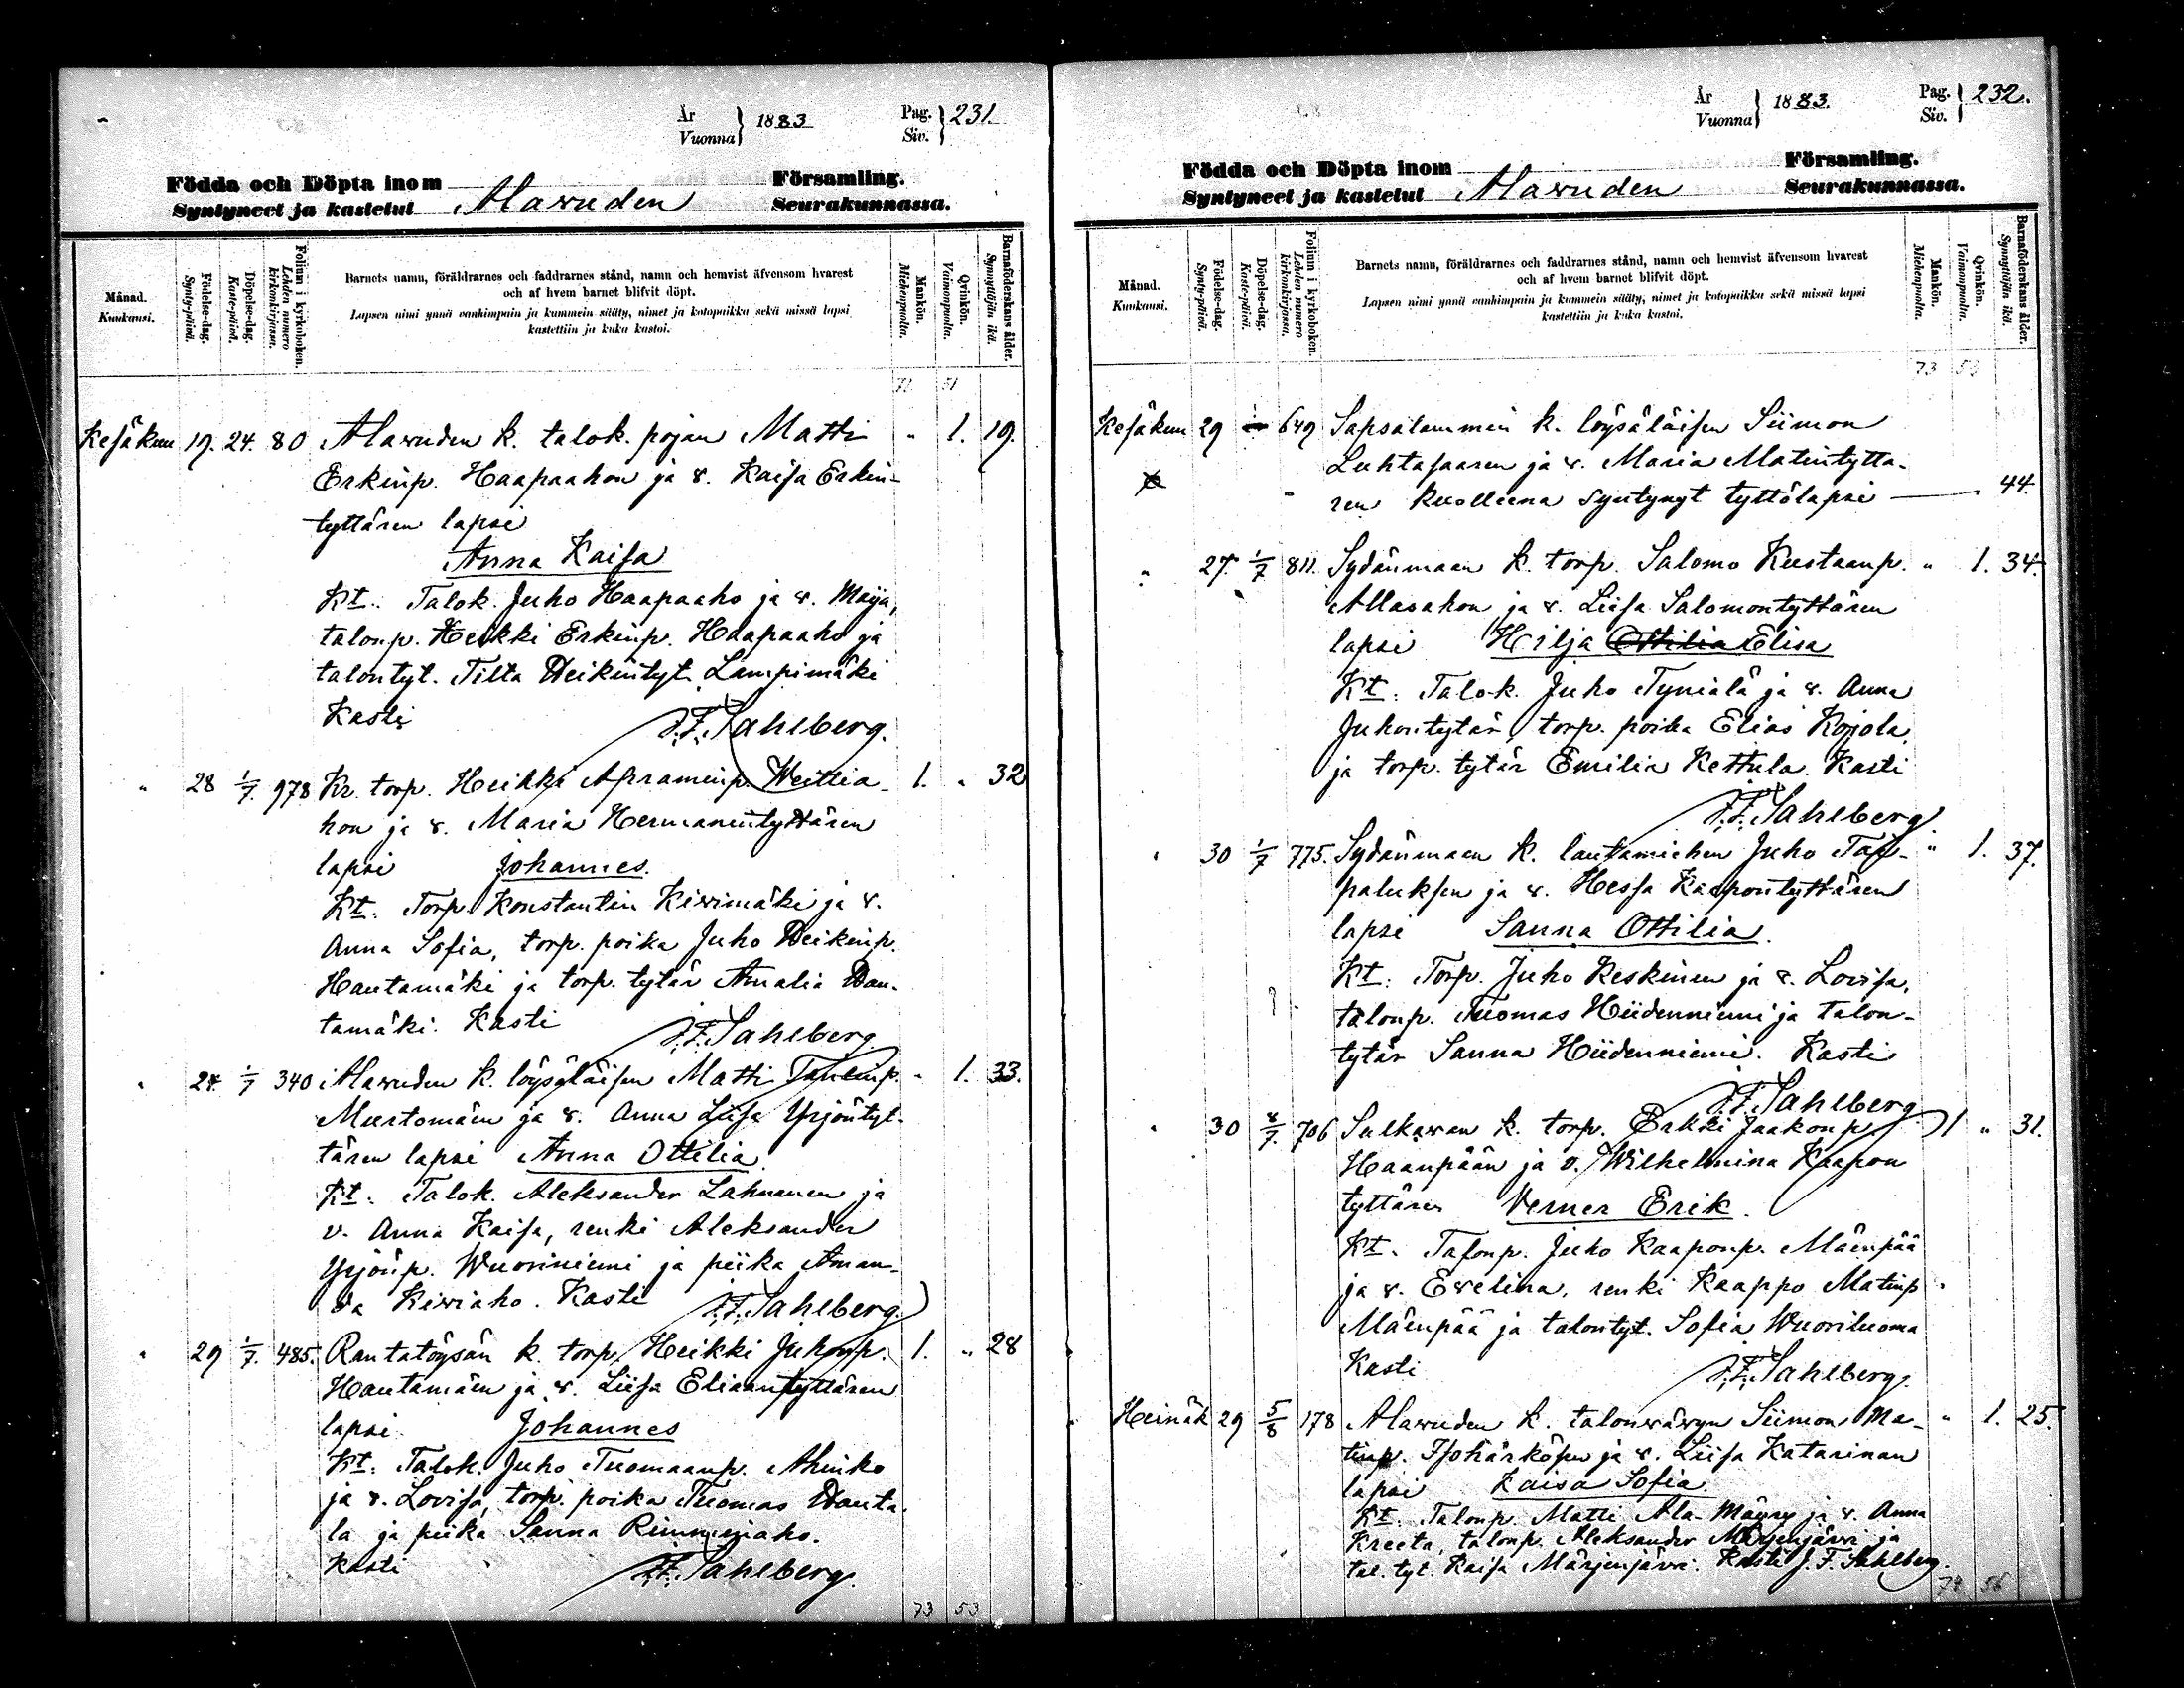 År
Vuonna } 1883
Pag.
Siv. } 231.
Födda och Döpta inom Församling.
Syntyneet ja kastetut Alawuden Seurakunnassa.
Månad.
Kuukausi.
Födelse-dag.
Synty-päivä.
Döpelse-dag.
Kaste-päivä.
Folium i kyrkoboken.
Lehden numero kirkonkirjassa.
Barnets namn, föräldrarnes och faddrarnes stånd, namn och hemvist äfvensom hvarest
och af hvem barnet blifvit döpt.
Lapsen nimi ynnä vanhimpain ja kummein sääty, nimet ja kotopaikka sekä missä lapsi
kastettiin ja kuka kastoi.
Mankön.
Miehenpuolta.
Qvinkön.
Vaimonpuolta.
Barnaföderskans ålder.
Synnyttäjän ikä.
72 51
Kesäkuu 19. 24. 80 Alawuden k. talok. pojan Matti " 1. 19.
Erkinp. Haapaahon ja v. Kaisa Erkin-
tyttären lapsi
Anna Kaisa
Kt: Talok. Juho Haapaaho ja v. Maija,
talonp. Heikki Erkinp. Haapaaho ja
talontyt. Tilta Heikintyt. Lampimäki
Kasti J. F. Sahlberg.
" 28 1/7. 978 Kr. torp. Heikki Apraminp. Weittia- 1. " 32
hon ja v. Maria Hermannintyttären
lapsi Johannes.
Kt: Torp. Konstantin Kivimäki ja v.
Anna Sofia, torp. poika Juho Heikinp.
Hautamäki ja torp. tytär Amalia Hau-
tamäki. Kasti J. F. Sahlberg.
" 24. 1/7 340 Alawuden k. löysäläisen Matti " 1. 33.
Murtomäen ja v. Anna Liisa Yrjöntyt-
tären lapsi Anna Ottilia.
Kt: Talok. Aleksander Lahnanen ja
v. Anna Kaisa, renki Aleksander
Yrjönp. Wuoriniemi ja piika Aman-
da Kiviaho. Kasti J. F. Sahlberg.
" 29 1/7. 485. Rantatöysän k. torp. Heikki Juhonp. 1. " 28
Hautamäen ja v. Liisa Eliaantyttären
lapsi Johannes
Kt: Talok. Juho Tuomaanp. Ahinko
ja v. Lovisa, torp. poika Tuomas Hauta-
la ja piika Sanna Rimminaho.
Kasti J. F. Sahlberg.
73 53
År
Vuonna } 1883.
Pag.
Siv. } 232.
Födda och Döpta inom Församling.
Syntyneet ja kastetut Alawuden Seurakunnassa.
Månad.
Kuukausi.
Födelse-dag.
Synty-päivä.
Döpelse-dag.
Kaste-päivä.
Folium i kyrkoboken.
Lehden numero kirkonkirjassa.
Barnets namn, föräldrarnes och faddrarnes stånd, namn och hemvist äfvensom hvarest
och af hvem barnet blifvit döpt.
Lapsen nimi ynnä vanhimpain ja kummein sääty, nimet ja kotopaikka sekä missä lapsi
kastettiin ja kuka kastoi.
Mankön.
Miehenpuolta.
Qvinkön.
Vaimonpuolta.
Barnaföderskans ålder.
Synnyttäjän ikä.
73 53
Kesäkuu 29 649 Sapsalammin k. löysäläisen Siimon
Luhtasaaren ja v. Maria Matintyttä-
ren kuolleena syntynyt tyttölapsi 44.
" 27. 1/7 811. Sydänmaan k. torp. Salomo Kustaanp. " 1. 34.
Allasahon ja v. Liisa Salomontyttären
lapsi Hilja Ottilia Elisa
Kt: Talok. Juho Tynjälä ja v. Anna
Juhontytär, torp. poika Elias Kojola,
ja torp. tytär Emilia Kettula. Kasti
J. F. Sahlberg.
" 30 1/7 775. Sydänmaan k. lautamiehen Juho Tai- " 1. 37.
paluksen ja v. Hessa Kaapontyttären
lapsi Sanna Ottilia.
Kt: Torp. Juho Keskinen ja v. Lovisa,
talonp. Tuomas Hiidenniemi ja talon-
tytär Sanna Hiidenniemi. Kasti
J. F. Sahlberg.
" 30 8/7. 706 Sulkawan k. torp. Erkki Jaakonp. 1 " 31.
Haanpään ja v. Wilhelmina Kaapon
tyttären Verner Erik.
Kt: Talonp. Juho Kaaponp. Mäenpää
ja v. Evelina, renki Kaappo Matinp
Mäenpää ja talontyt. Sofia Wuoriluoma
Kasti J. F. Sahlberg.
Heinäk 29 5/8 178 Alawuden k. talonvävyn Siimon Ma- " 1. 25.
tinp. Isohärkösen ja v. Liisa Katarinan
lapsi Kaisa Sofia.
Kt: Talonp. Matti Ala-Mäyry ja v. Anna
Kreeta, talonp. Aleksander Märjenjärvi ja
tal. tyt. Kaisa Märjenjärvi. Kasti J. F. Sahlberg.
74 56